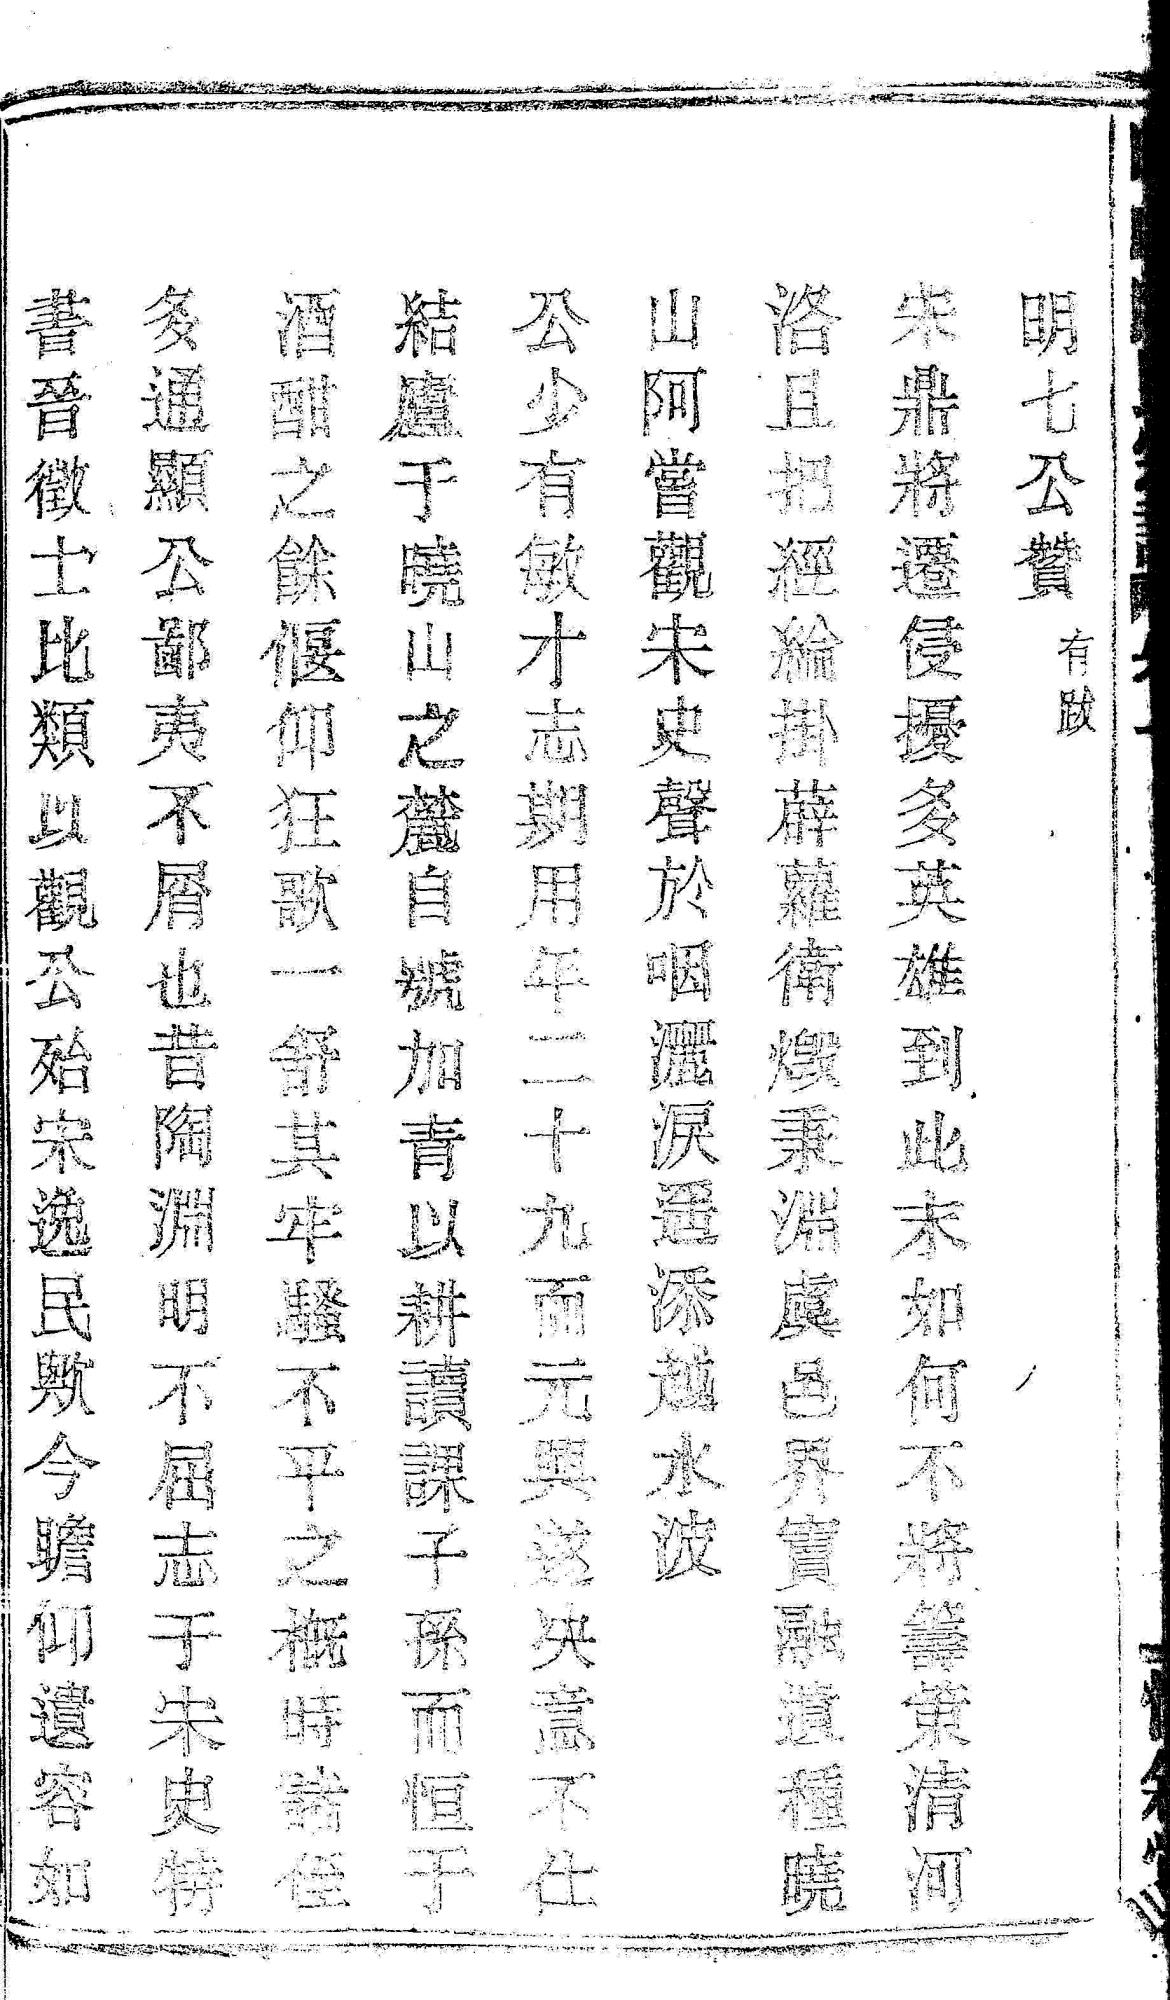 明七公贊 有跋
宋鼎將遷侵擾多英雄到此末如何不將籌策清河
洛且把經綸掛薜蘿衛燬秉淵虞邑界竇融遺種曉
山阿嘗觀宋史聲於咽灑淚遥添越水波
公少有敏才志期用年二十九而元興遂决意不仕
結廬于曉山之麓自號加青以耕讀課子孫而恒于
酒酣之餘偃仰狂歌一舒其牢騷不平之概時諸侄
多通顯公鄙夷不屑也昔陶淵明不屈志于宋史特
書晉徵士比類以觀公殆宋逸民歟今瞻仰遺容如